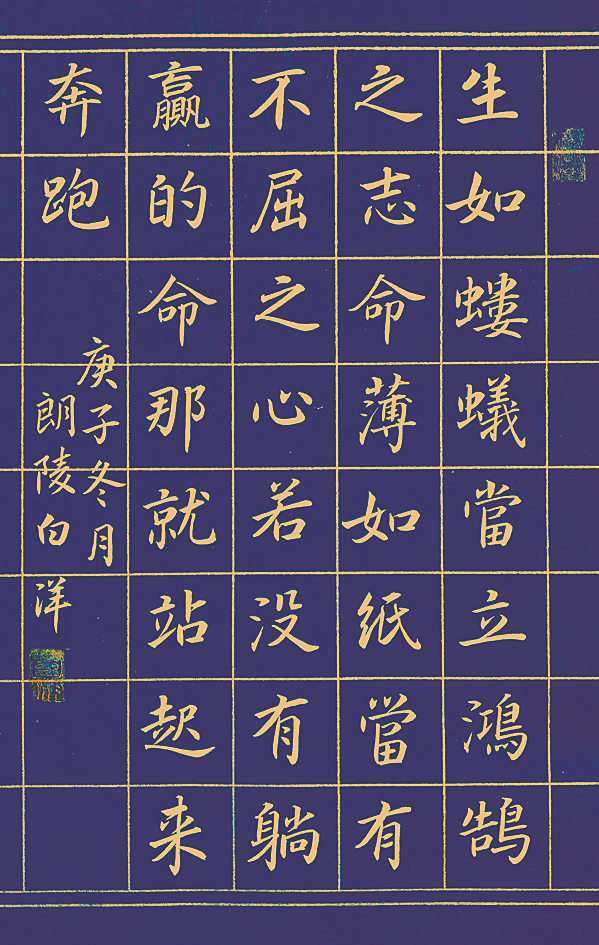 生如蝼蚁當立鴻鵠
之志命薄如紙當有
不屈之心若没有躺
贏的命那就站起来
奔跑
庚子冬月
朗陵白洋